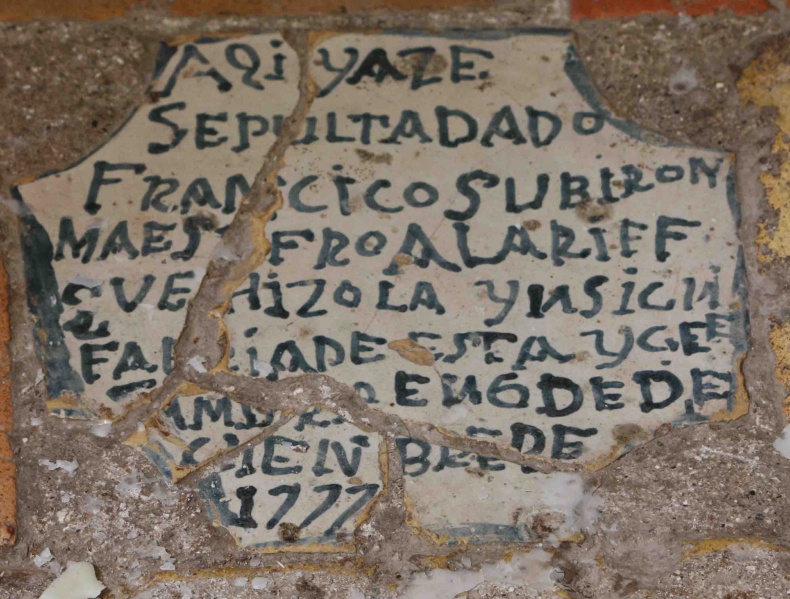 AQi YAZE
SEPULTADADO
FRANCICO SUBIRON
MAESTRO ALARIFE
QUE HIZO LA YNSIGN
FABRiADE ESTA YGLE
EN 6 DE DE
CIEN BRE DE
1777